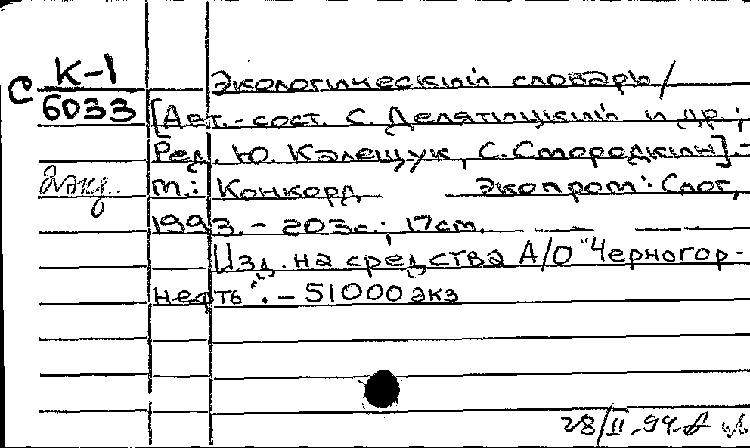 С К-1 Экологический словарь /
6033 [Авт.-сост. С. Делятицкий и др.;
Ред. Ю. Калещук, С. Стородкин] -
2 экз. М.: Конкорд Экопром: Слог,
1993. - 203с.; 17см.
Изд. на средства А/О "Черногор-
нефть". - 51000 экз
28/II.94